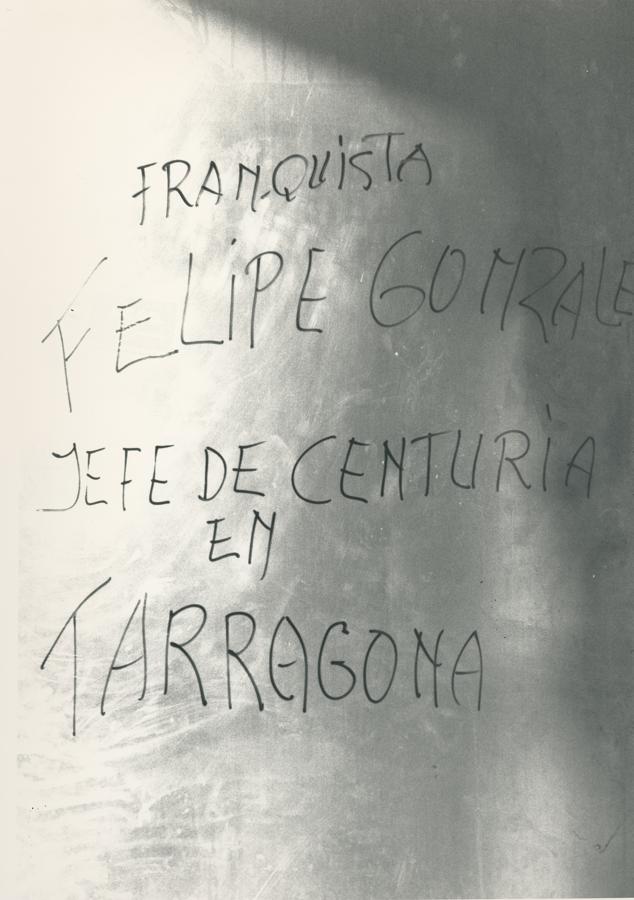 FRANQUISTA
FELIPE GONZALE
JEFE DE CENTURIA
EN
TARRAGONA